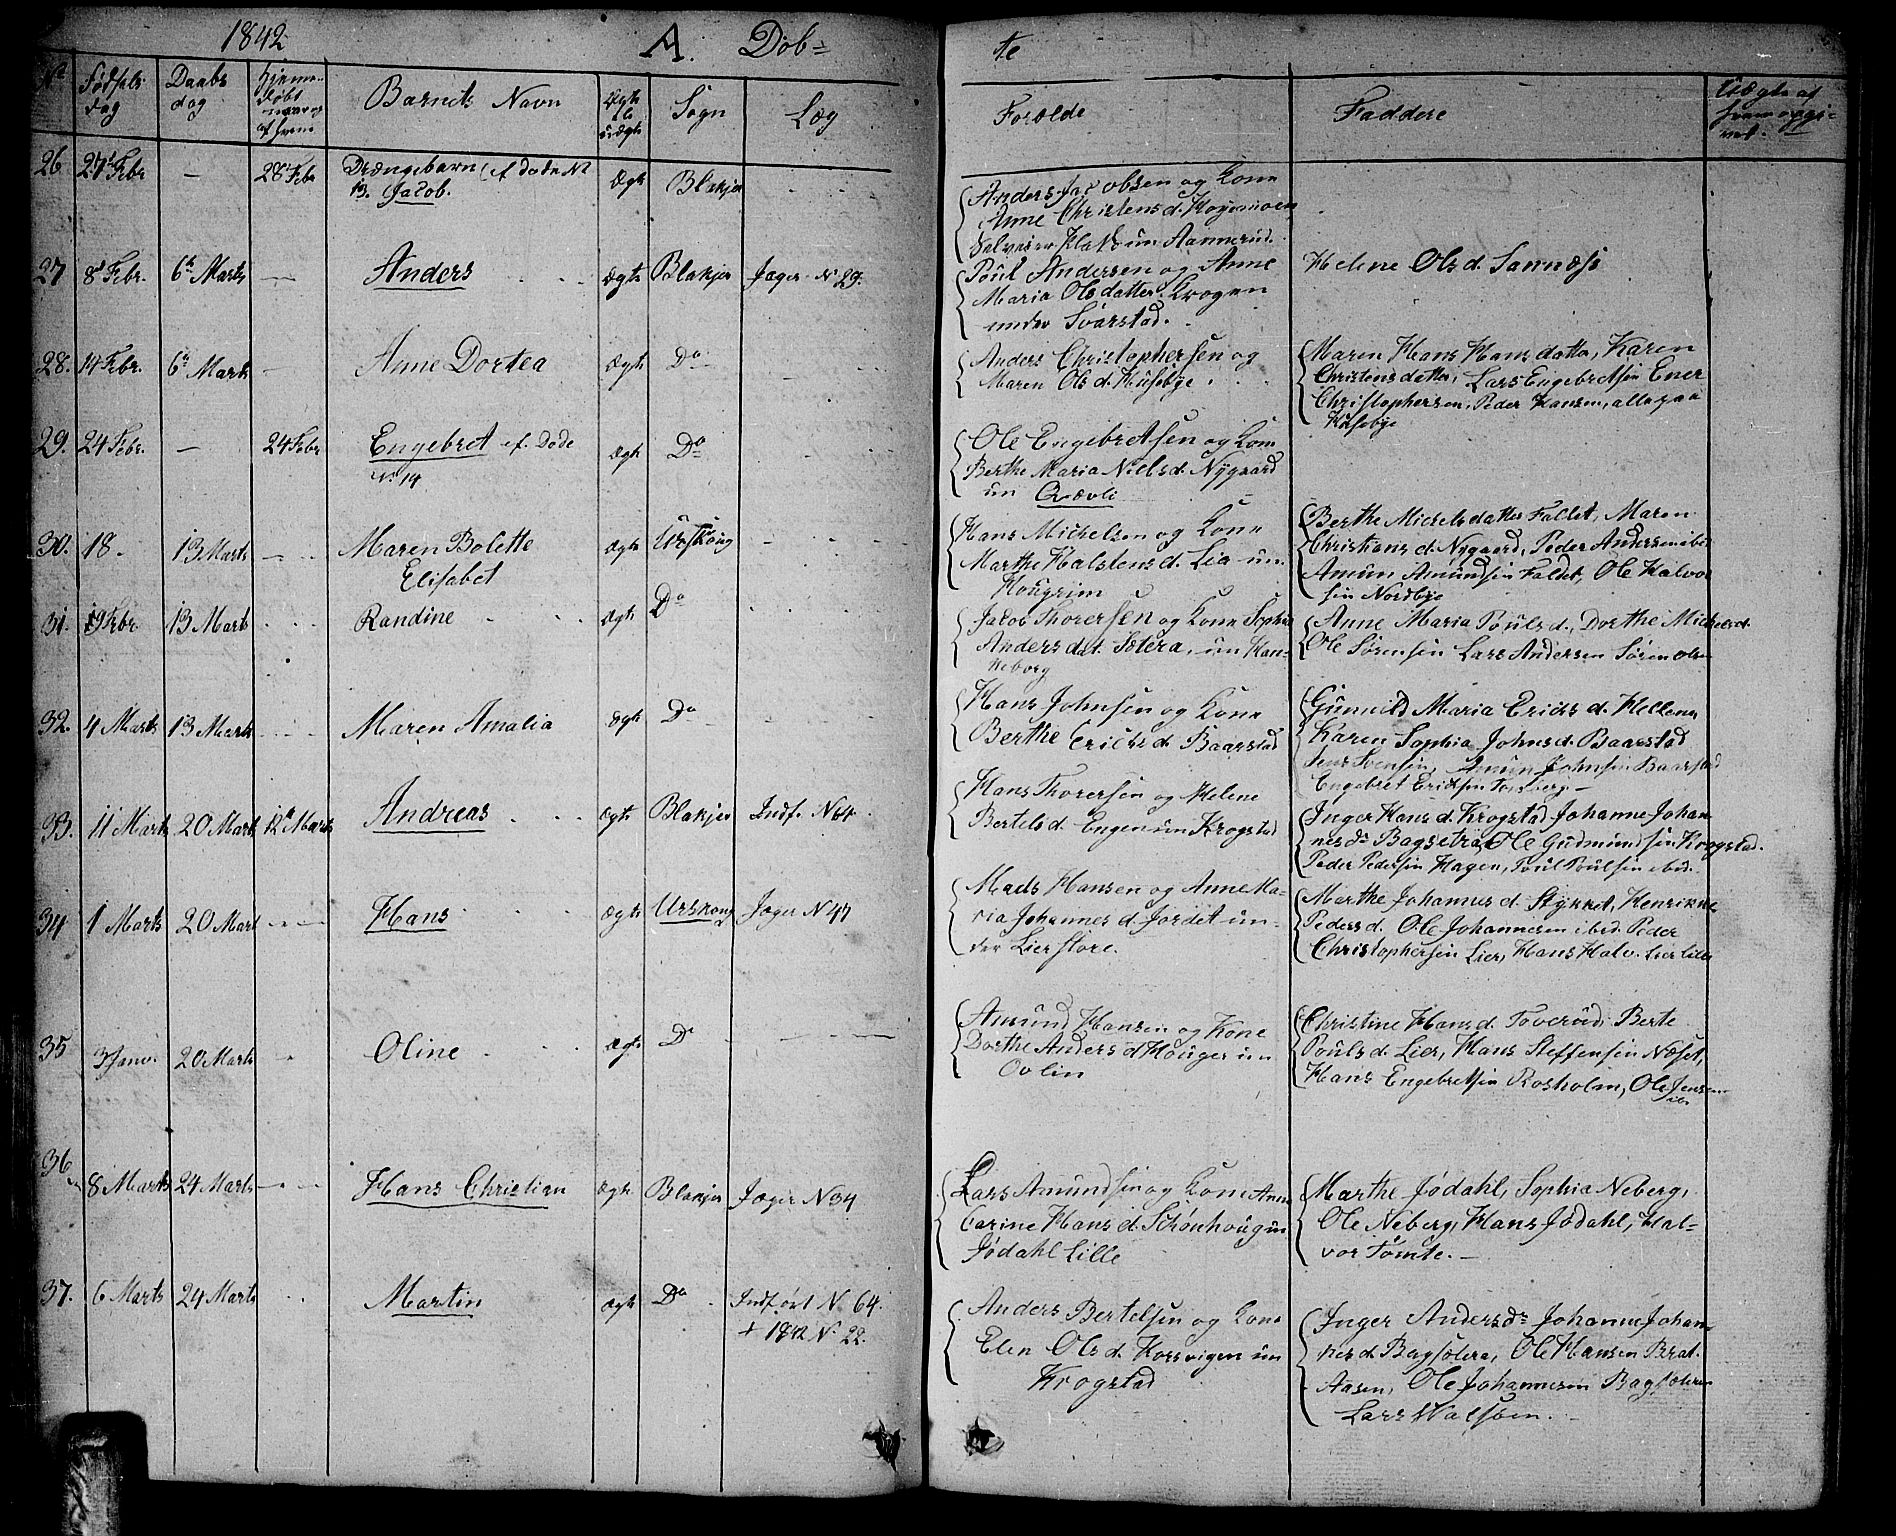 1842 A. Døb= te
No Fødsels dag Daabs dag Hjemme døbt naar og af hvem Barnets Navn Ægte el. uægte Sogn Læg Forældre Faddere Uægte af hvem opgivet.
26 27 Febr — 28 Febr Drængebarn (cf døde N
13. Jacob. Ægte Blakjer
Anders Jacobsen og Kone
Anne Christens d.
27 8 Febr. 6te Marts — Anders ægte Blakjer Jæger N 29.
Poul Andersen og Anne
Maria Olsdatter Krogen
under Svarstad.
Helene Ols d. Sannæs
28. 14 Febr. 6te Marts — Anne Dortea ægte Do
Anders Christophersen og
Maren Ols d. Huseby.
Maren Hans Hansdatter, Karen
Christensdatter, Lars Engebretsen Ener
Christophersen, Peder Hansen, alle paa
Huseby
29. 24 Febr. — 24 Febr Engebret cf. Døde
No 14 ægte Do
Ole Engebretsen og Kone
Berthe Maria Niels d. Nygaard
un Qvævli
30. 18 13 Marts — Maren Bolette
Elisabet ægte Urskoug
Hans Michelsen og Kone
Marthe Halstens d. Lia un.
Hougrim
Berthe Michelsdatter Faldet, Maren
Christians d. Nygaard, Peder Andersen ibid
Amun Amundsen Faldet, Ole Halvor
sen Nordbye
31. 19 Febr 13 Marts Randine ægte Do
Jacob Thoresen og Kone Sophia
Anders dat. Sætera, un Han=
keborg
Anne Maria Pouls d., Dorthe Michels d.
Ole Sørensen Lars Andersen Søren Olsen
32. 4 Marts 13 Marts Maren Amalia ægte Do
Hans Johnsen og Kone
Berthe Erichs d. Baarstad
Gunnild Maria Erichs d. Hellene
Karen Sophia Johns d. Baarstad
Jens Svensen, Amun Johnsen Baarstad
Engebret Ericksen
33. 11 Marts 20 Marts 12te Marts Andreas ægte Blakjer Indf. N 64
Hans Thoresen og Helene
Bertels d. Engen un Krogstad
Inger Hans d. Krogstad Johanne Johan
nes d. Bagsetra, Ole Gudmundsen Krogstad.
Peder Pedersen Hagen, Poul Poulsen ibid.
34 1 Marts 20 Mart Hans ægte Urskoug Jæger N 47
Mads Hansen og Anne Ma-
ria Johannes d Jordet un-
der Lier Store.
Marthe Johannes d. Stykket, Henrikke
Peders d. Ole Johannesen ibid. Peder
Christophersen Lier, Hans Halv. Lier Lille
35 3 Janv. 20 Marts Oline ægte Do
Amund Hansen og Kone
Dorthe Anders d Houger un
Ovlin
Christine Hans d. Toverud, Berte
Pouls d. Lier, Hans Steffensen Næset,
Hans Engebretsen Rosholm, Ole Jensen
ibid
36 8 Marts 24 Marts Hans Christian ægte Blakjer Jæger N 34
Lars Amundsen og Kone Anne
Carine Hans d. Schønhoug un
Jødahl Lille
Marthe Jødahl, Sophia Neberg,
Ole Neberg, Hans Jødahl, Hal-
vor Tømte. —
37. 6 Marts 24 Marts Martin ægte Do Indført N 64.
+ 1842 N. 22.
Anders Bertelsen og Kone
Elen Ols d. Korsvigen un
Krogstad
Inger Anders d. Johanne Johan-
nes d. Bagsætera, Ole Hansen Brat-
Aasen, Ole Johannesen Bagsæteren
Lars